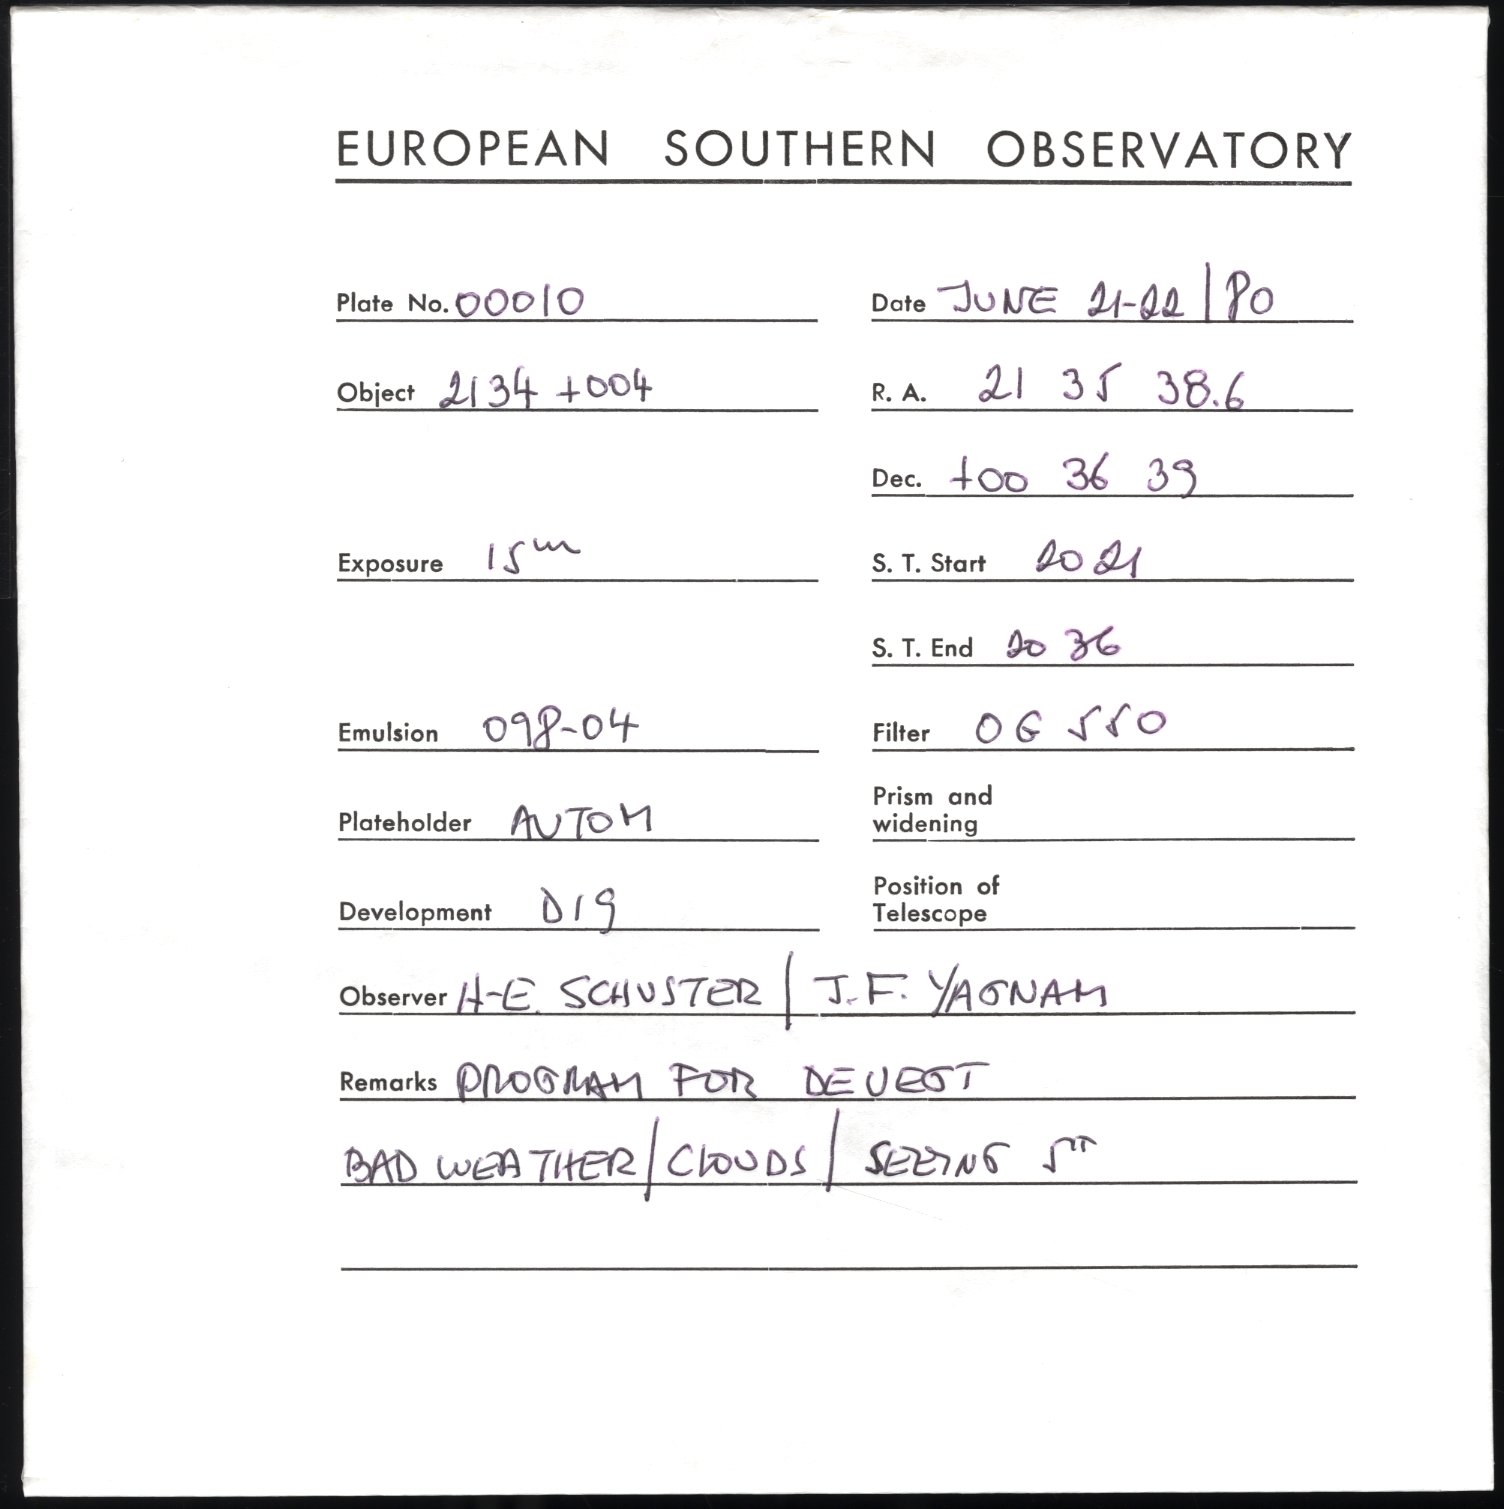 EUROPEAN SOUTHERN OBSERVATORY
Plate No. 00010 Date JUNE 21-22 / 80
Object 2134 +004 R. A. 21 35 38.6
Dec. +00 36 39
Exposure 15m S. T. Start 20 21
S. T. End 20 36
Emulsion 098-04 Filter OG 550
Prism and
Plateholder AUTOM widening
Position of
Development D19 Telescope
Observer H-E. SCHUSTER / J.F. YAGNAM
Remarks PROGRAM FOR DEVEGT
BAD WEATHER / CLOUDS / SEEING 5"